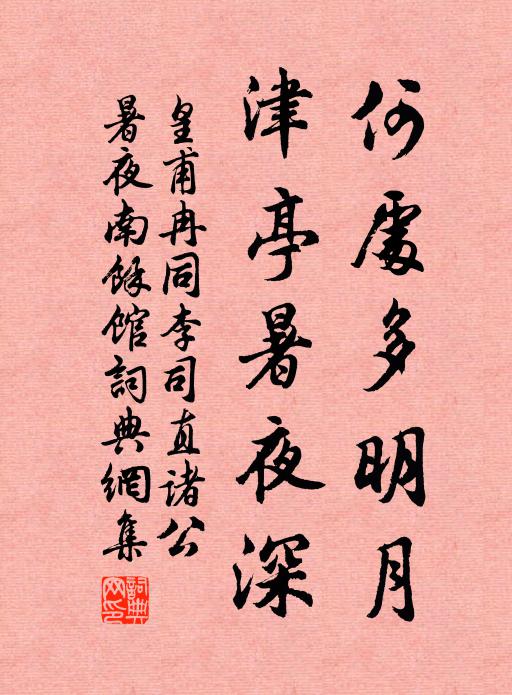 何處多明月
津亭暑夜深
皇甫冉同李司直諸公
暑夜南餘館詞典網集
詞典
网印